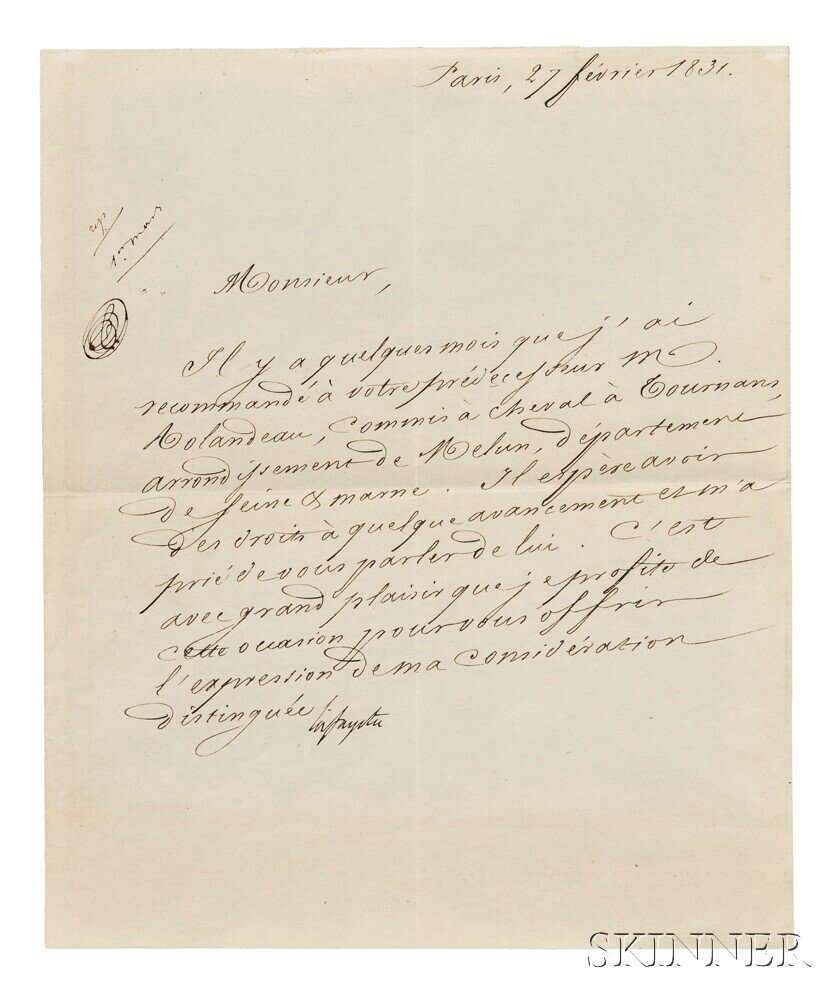 Paris, 27 février 1831.
rep
1er mars
Monsieur,
Il y a quelques mois que j'ai
recommandé à votre prédécesseur Mr.
Rolandeau, commis à cheval à Tournans,
arrondissement de Melun, département
de Seine & marne. Il espère avoir
des droits à quelque avancement et m'a
prié de vous parler de lui. C'est
avec grand plaisir que je profite de
cette occasion pour vous offrir
l'expression de ma considération
distinguée
Lafayette
SKINNER